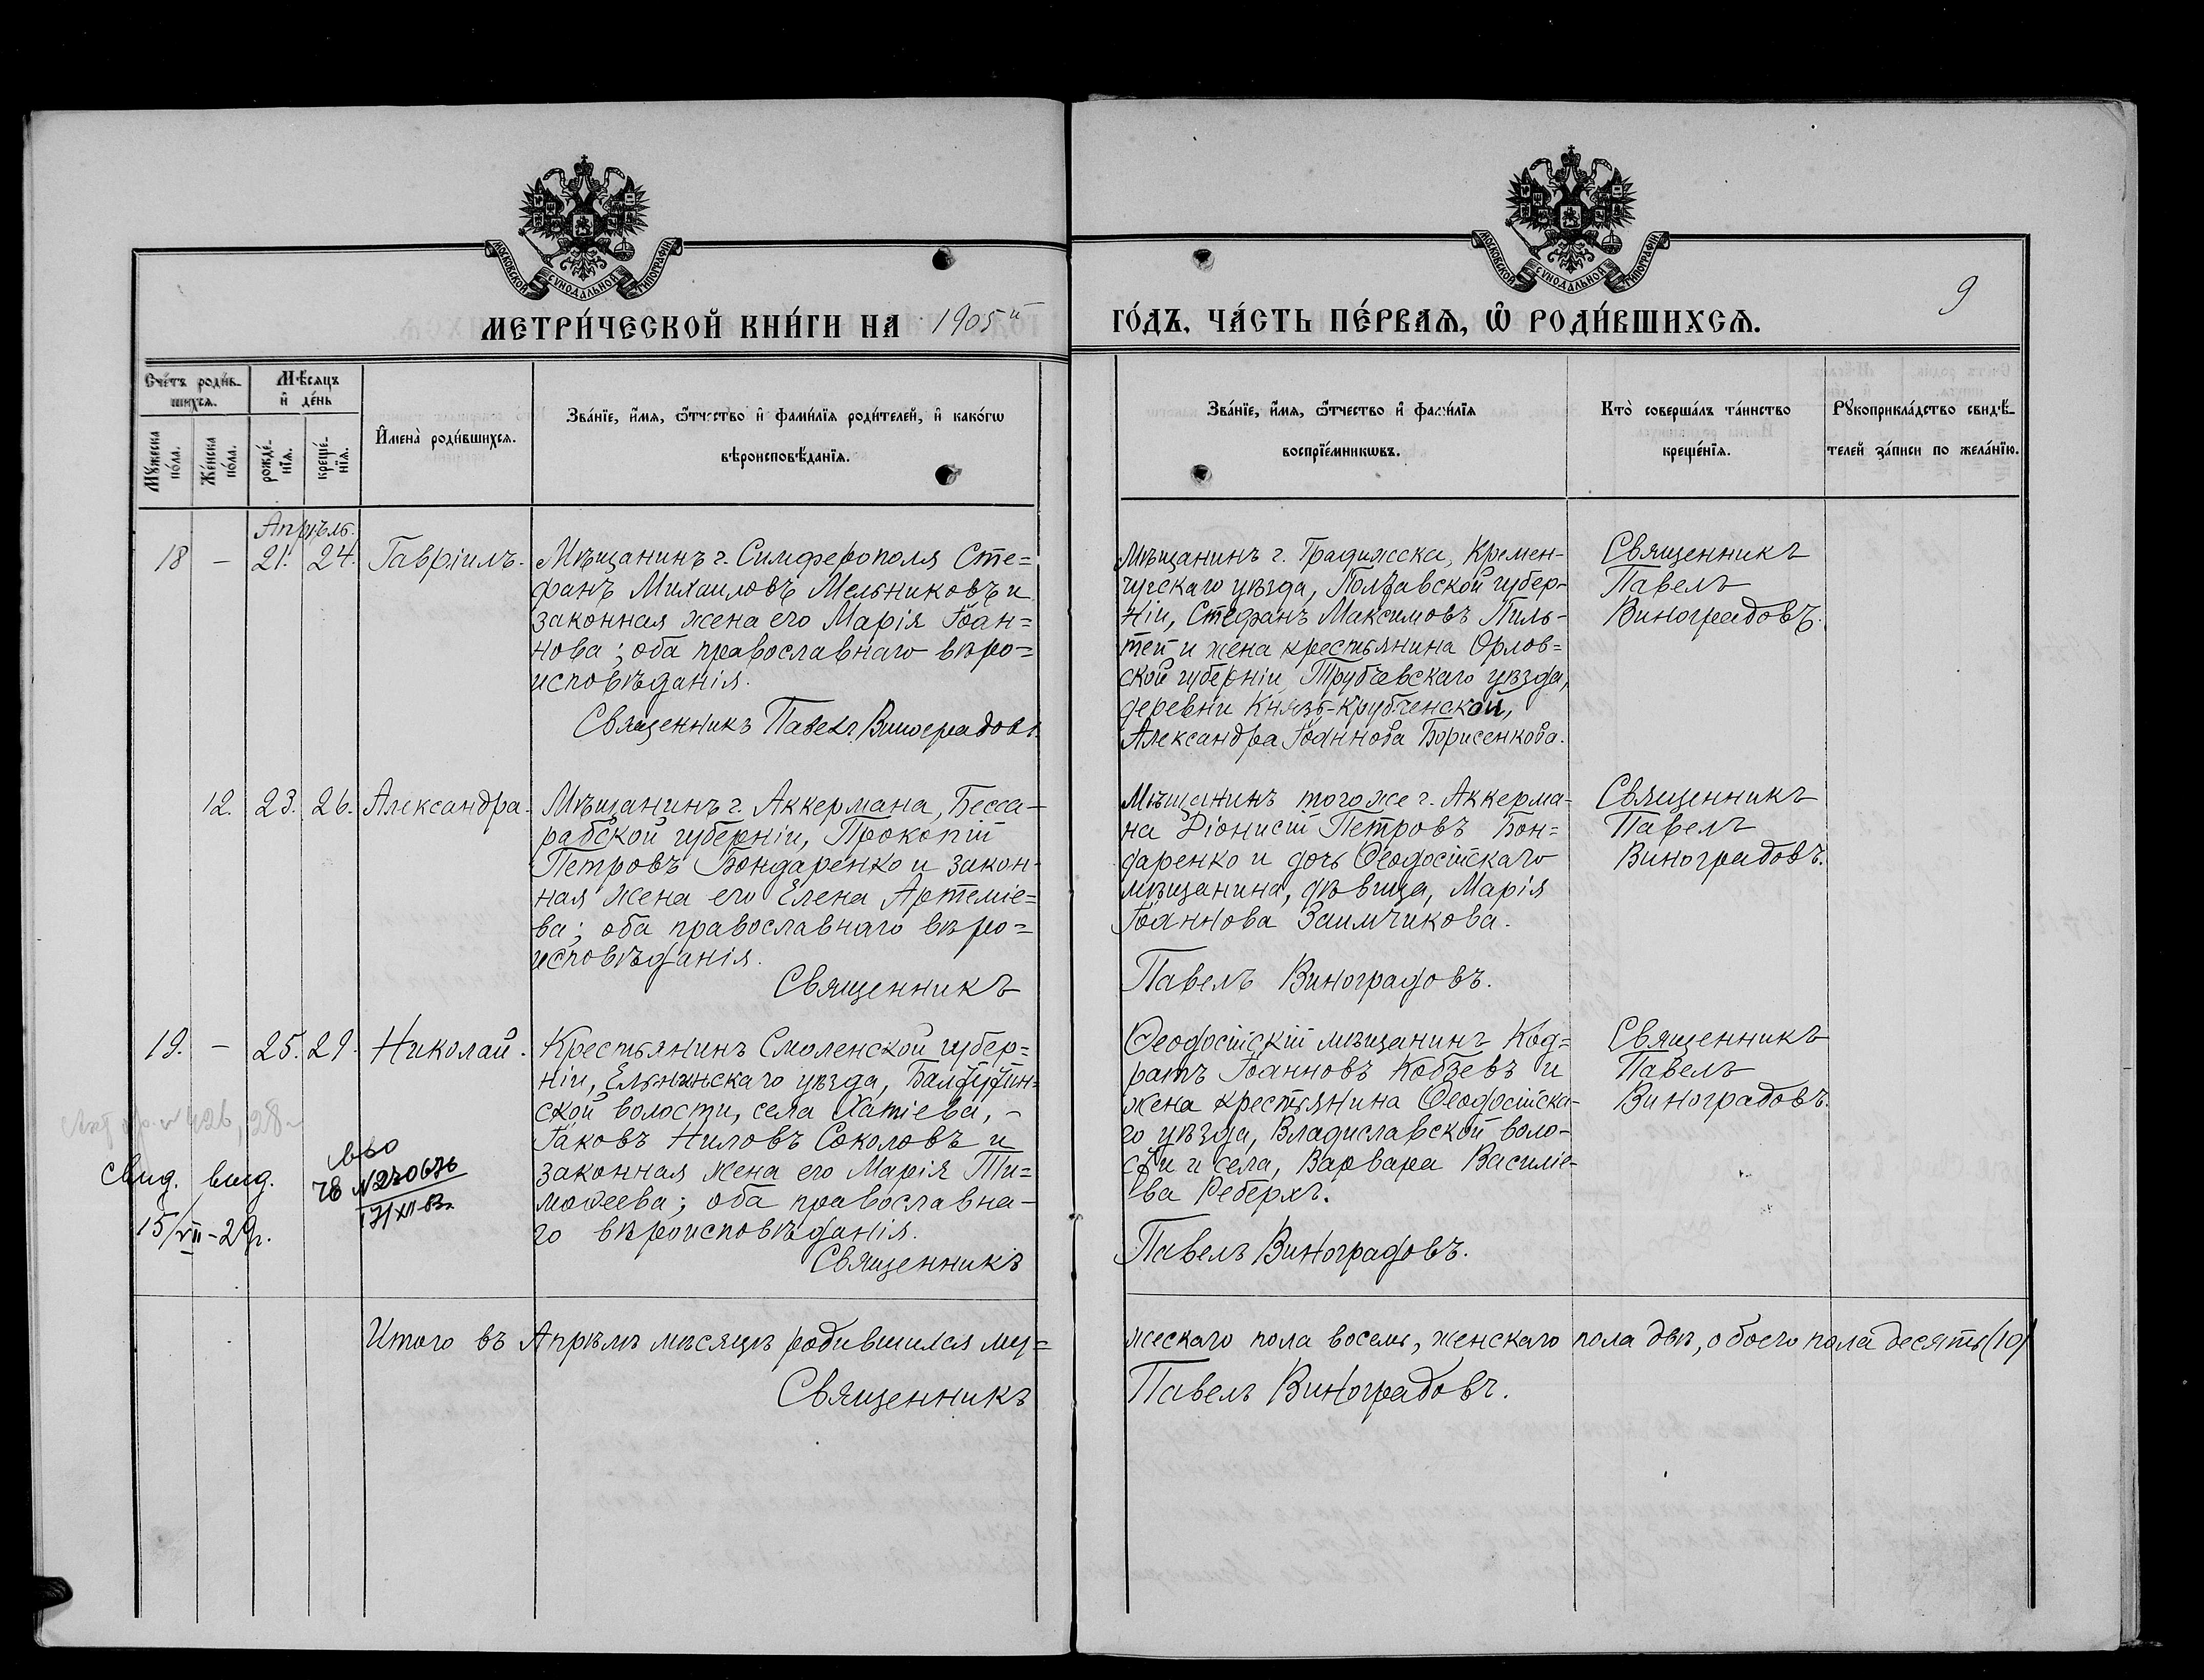 МОСКОВСКОЙ СѴНОДАЛЬНОЙ ТИПОГРАФІИ
МОСКОВСКОЙ СѴНОДАЛЬНОЙ ТИПОГРАФІИ
МЕТРИ́ЧЕСКОЙ КНИ́ГИ НА 1905й
ГО́ДЪ, ЧА́СТЬ ПЕ́РВАѦ, Ѡ РОДИ́ВШИХСѦ.
9
Сче́тъ роди́в-
шихсѧ.
Мѣ́сѧцъ
и҆ де́нь
Мꙋ́жеска
по́ла.
Же́нска
по́ла.
рожде́-
нїѧ.
креще́-
нїѧ.
И҆мена̀ роди́вшихсѧ.
Зва́нїе, и҆́мѧ, ѻ҆́тчество и҆ фами́лїѧ роди́телей, и҆ како́гѡ
вѣроисповѣ́данїѧ.
Зва́нїе, и҆́мѧ, ѻ҆́тчество и҆ фами́лїѧ
воспрїе́мникѡвъ.
Кто̀ соверша́лъ та́инство
креще́нїѧ.
Рꙋкоприкла́дство свидѣ́-
телей за́писи по жела́нїю.
Апрѣль.
18 – 21. 24. Гавріилъ.
Мѣщанинъ г. Симферополя Сте=
фанъ Михаиловъ Мельниковъ и
законная жена его Марія Іоан=
нова; оба православнаго вѣро=
исповѣданія.
Священникъ Павелъ Виноградовъ.
Мѣщанинъ г. Градижска, Кремен-
чугскаго уѣзда, Полтавской губер-
ніи, Стефанъ Максимовъ Пиль-
тей и жена крестьянина Орлов=
ской губерніи, Трубчевскаго уѣзда,
деревни Князь-Крубченской,
Александра Іоаннова Борисенкова.
Священникъ
Павелъ
Виноградовъ.
12. 23. 26. Александра.
Мѣщанинъ г. Аккермана, Бесса-
рабской губерніи, Прокопій
Петровъ Бондаренко и закон-
ная жена его Елена Артеміе=
ва; оба православнаго вѣро=
исповѣданія.
Священникъ
Мѣщанинъ того же г. Аккерма-
на Діонисій Петровъ Бон=
даренко и дочь Ѳеодосійскаго
мѣщанина, дѣвица, Марія
Іоаннова Заимчикова.
Павелъ Виноградовъ.
Священникъ
Павелъ
Виноградовъ.
19. – 25. 29. Николай.
Крестьянинъ Смоленской губер=
ніи, Ельнинскаго уѣзда, Балтутин-
ской волости, села Хатіева, -
Іаковъ Ниловъ Соколовъ и
законная жена его Марія Ти=
моѳеева; оба православна-
го вѣроисповѣданія.
Священникъ
Ѳеодосійскій мѣщанинъ Код=
ратъ Іоанновъ Кобзевъ и
жена крестьянина Ѳеодосійска-
го уѣзда, Владиславской воло-
сти и села, Варвара Василіе-
ва Реберхъ.
Павелъ Виноградовъ.
Священникъ
Павелъ
Виноградовъ.
свид. выд.
15/VII-29г.
ЧВ №270676
Итого въ Апрѣлѣ мѣсяцѣ родившихся му=
жескаго пола восемь, женскаго пола двѣ, обоего пола десять (10)
Священникъ
Павелъ Виноградовъ.